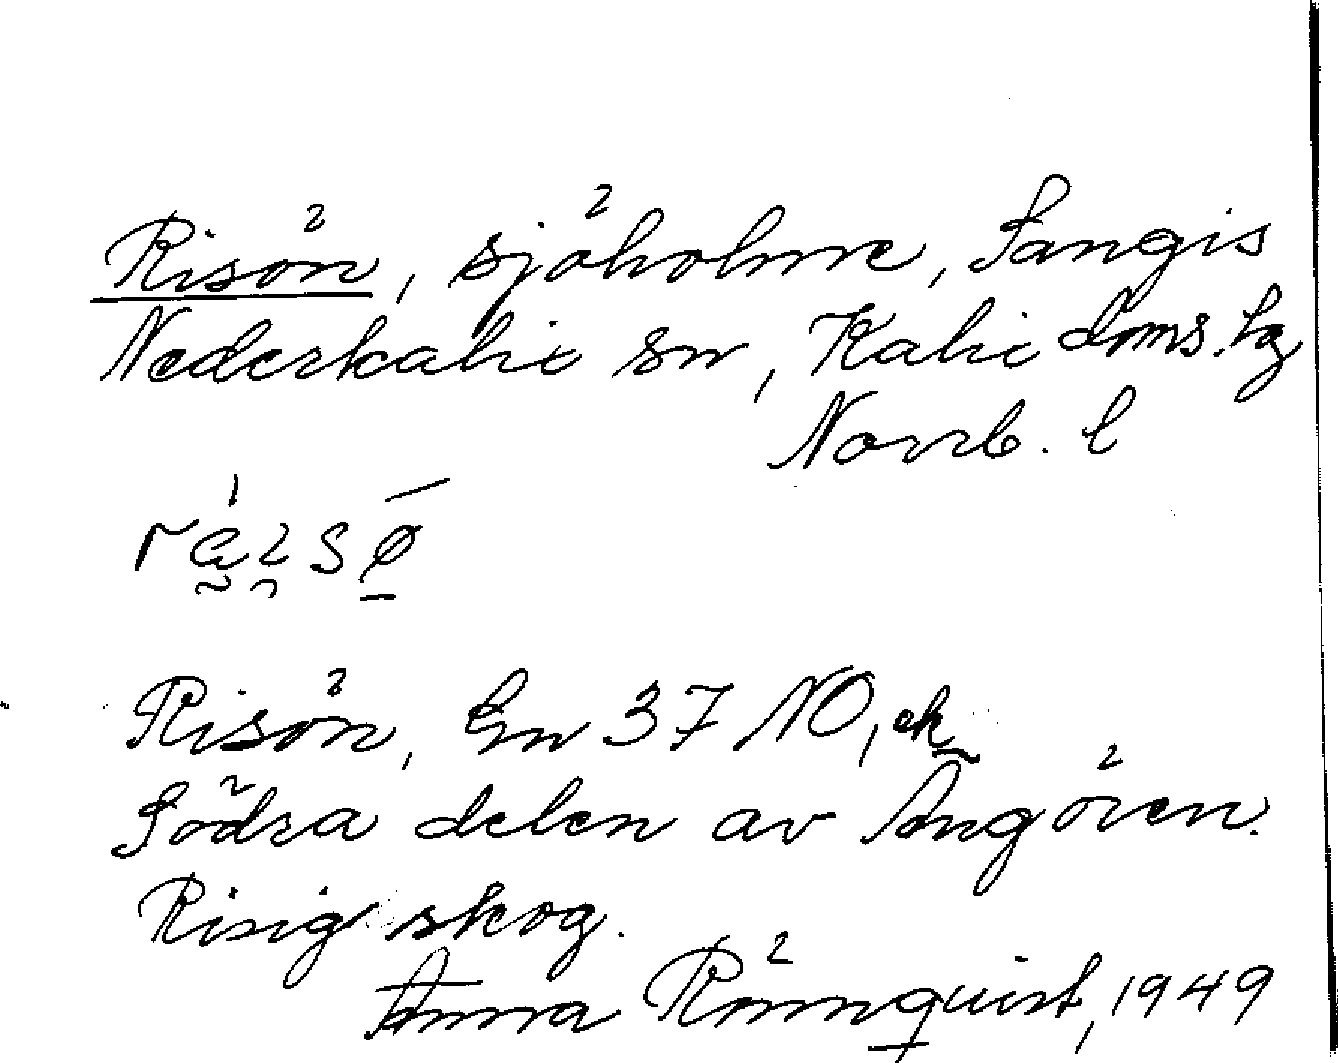 Risön, sjöholme, Sangis
Nederkalix sn, Kalix doms. lg
Norrb. l
Risön, Gn 37 NO, ek
Södra delen av Angören.
Risig skog.
Anna Rönnquist, 1949